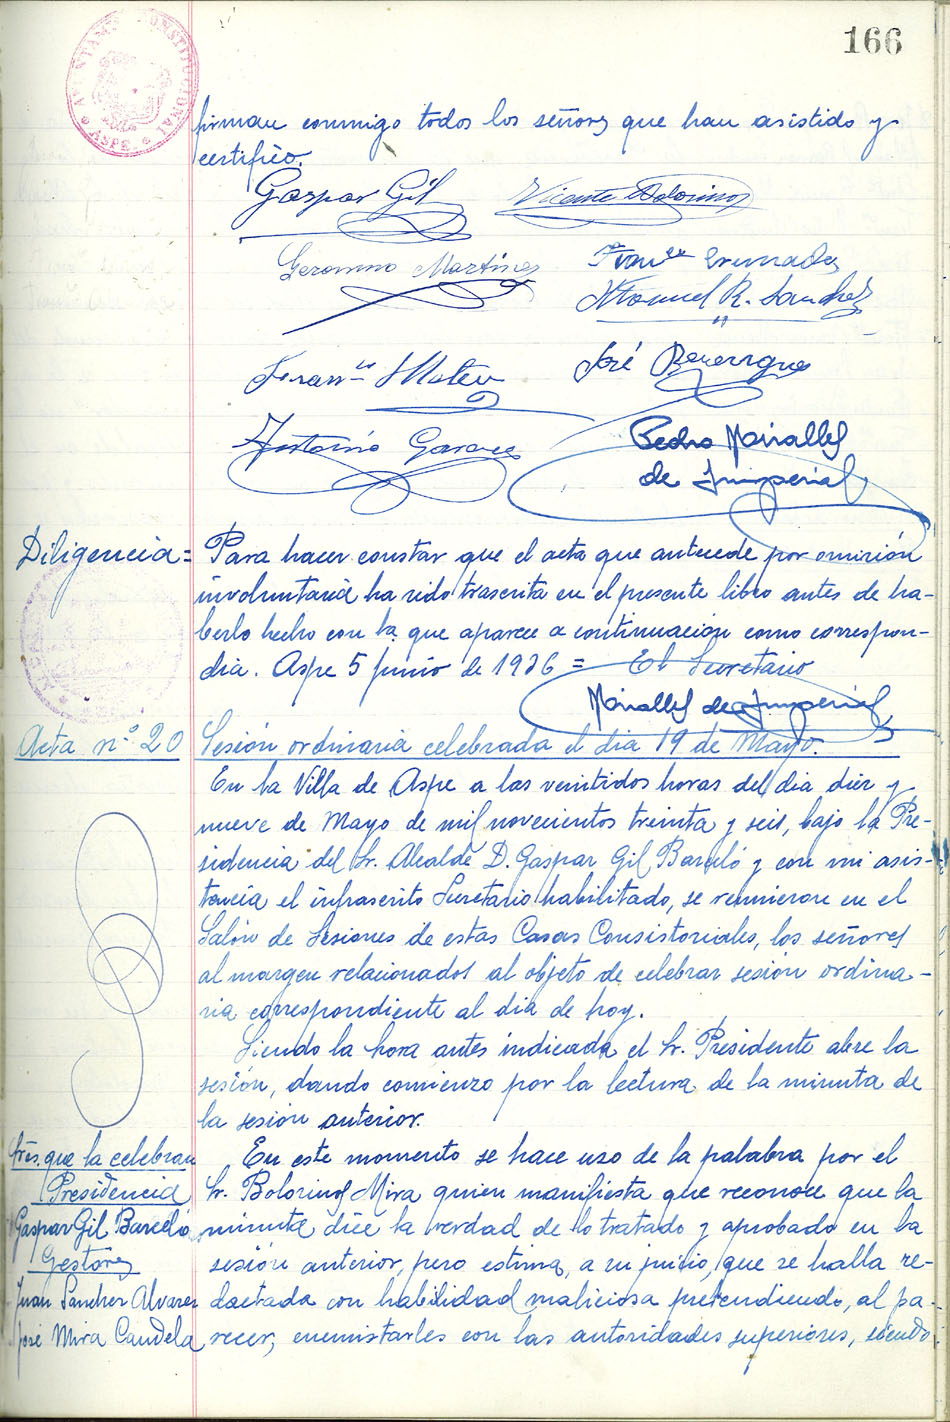 166
AYUNTAMTO CONSTITUCIONAL
ASPE.
firman conmigo todos los señores que han asistido y
certifico.
Gaspar Gil
Vicente Bolorinos
Geronimo Martínez
Manuel R. Sanchez
José
Antonio
Pedro Mirallel
de Imperial
Diligencia = Para hacer constar que el acta que antecede por omisión
involuntaria ha sido trascrita en el presente libro antes de ha-
berlo hecho con la que aparece a continuación como correspon-
dia. Aspe 5 junio de 1936 = El Secretario
Mirallel de Imperial
Acta nº 20 Sesión ordinaria celebrada el dia 19 de Mayo.
En la Villa de Aspe a las veintidos horas del dia diez y
nueve de Mayo de mil novecientos treinta y seis, bajo la Pre-
sidencia del Sr. Alcalde D. Gaspar Gil Barceló y con mi asis-
tencia el infrascrito Secretario habilitado, se reunieron en el
Salón de Sesiones de estas Casas Consistoriales, los señores
al margen relacionados al objeto de celebrar sesión ordina-
ria correspondiente al dia de hoy.
Siendo la hora antes indicada el Sr. Presidente abre la
sesión, dando comienzo por la lectura de la minuta de
la sesión anterior.
Srs. que la celebran
Presidencia
Gaspar Gil Barceló
Gestores
Juan Sanchez Alvarez
José Mira Candela
En este momento se hace uso de la palabra por el
Sr. Bolorinos Mira quien manifiesta que reconoce que la
minuta dice la verdad de lo tratado y aprobado en la
sesión anterior, pero estima, a su juicio, que se halla re-
dactada con habilidad maliciosa pretendiendo, al pa-
recer, enemistarles con las autoridades superiores, siendo